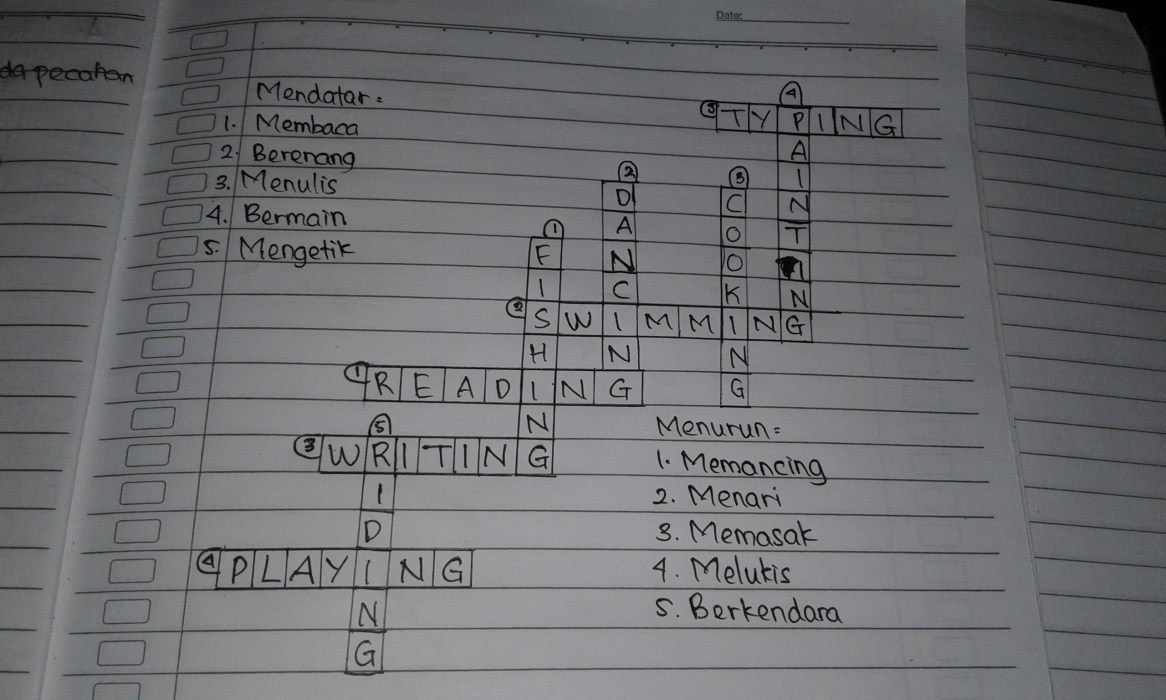 Date:
da pecahan
Mendatar:
1. Membaca
2. Berenang
3. Menulis
4. Bermain
5. Mengetik
4
5 TYPING
PAINTING
2
DANCING
3
COOKING
1
FISHING
2 SWIMMING
1 READING
5
3 WRITING
RIDING
4 PLAYING
Menurun:
1. Memancing
2. Menari
3. Memasak
4. Melukis
5. Berkendara